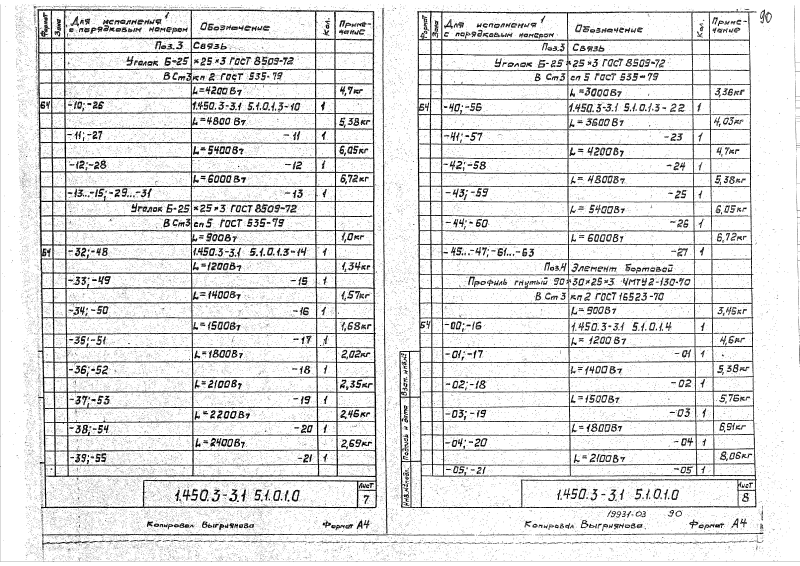 90
Формат
Зона
Для исполнения¹ с порядковым номером
Обозначение
Кол.
Примечание
Поз.3 Связь
Уголок Б-25×25×3 ГОСТ 8509-72
В Ст3 кп 2 ГОСТ 535-79
L=4200 Вт 4,7кг
Б4 -10;-26 1.450.3-3.1 5.1.0.1.3-10 1
L=4800 Вт 5,38кг
-11;-27 -11 1
L=5400Вт 6,05кг
-12;-28 -12 1
L=6000Вт 6,72кг
-13...-15;-29...-31 -13 1
Уголок Б-25×25×3 ГОСТ 8509-72
В Ст3 сп 5 ГОСТ 535-79
L=900Вт 1,0кг
Б4 -32;-48 1.450.3-3.1 5.1.0.1.3-14 1
L=1200Вт 1,34кг
-33;-49 -15 1
L=1400Вт 1,57кг
-34;-50 -16 1
L=1500Вт 1,68кг
-35;-51 -17 1
L=1800Вт 2,02кг
-36;-52 -18 1
L=2100Вт 2,35кг
-37;-53 -19 1
L=2200Вт 2,46кг
-38;-54 -20 1
L=2400Вт 2,69кг
-39;-55 -21 1
1.450.3-3.1 5.1.0.1.0
Лист
7
Копировал Выгриянова Формат А4
Формат
Зона
Для исполнения¹ с порядковым номером
Обозначение
Кол.
Примечание
Поз.3 Связь
Уголок Б-25×25×3 ГОСТ 8509-72
В Ст3 сп 5 ГОСТ 535-79
L=3000Вт 3,36кг
Б4 -40;-56 1.450.3-3.1 5.1.0.1.3-22 1
L=3600Вт 4,03кг
-41;-57 -23 1
L=4200Вт 4,7кг
-42;-58 -24 1
L=4800Вт 5,38кг
-43;-59 -25 1
L=5400Вт 6,05кг
-44;-60 -26 1
L=6000Вт 6,72кг
-45...-47;-61...-63 -27 1
Поз.4 Элемент бортовой
Профиль гнутый 90×30×25×3 ЧМТУ2-130-70
В Ст3 кп2 ГОСТ 16523-70
L=900Вт 3,46кг
Б4 -00;-16 1.450.3-3.1 5.1.0.1.4 1
L=1200Вт 4,6кг
-01;-17 -01 1
L=1400Вт 5,38кг
-02;-18 -02 1
L=1500Вт 5,76кг
-03;-19 -03 1
L=1800Вт 6,91кг
-04;-20 -04 1
L=2100Вт 8,06кг
-05;-21 -05 1
Взам. инв.№
Подпись и дата
Инв.№подл.
1.450.3-3.1 5.1.0.1.0
Лист
8
19931-03 90
Копировал Выгриянова. Формат А4